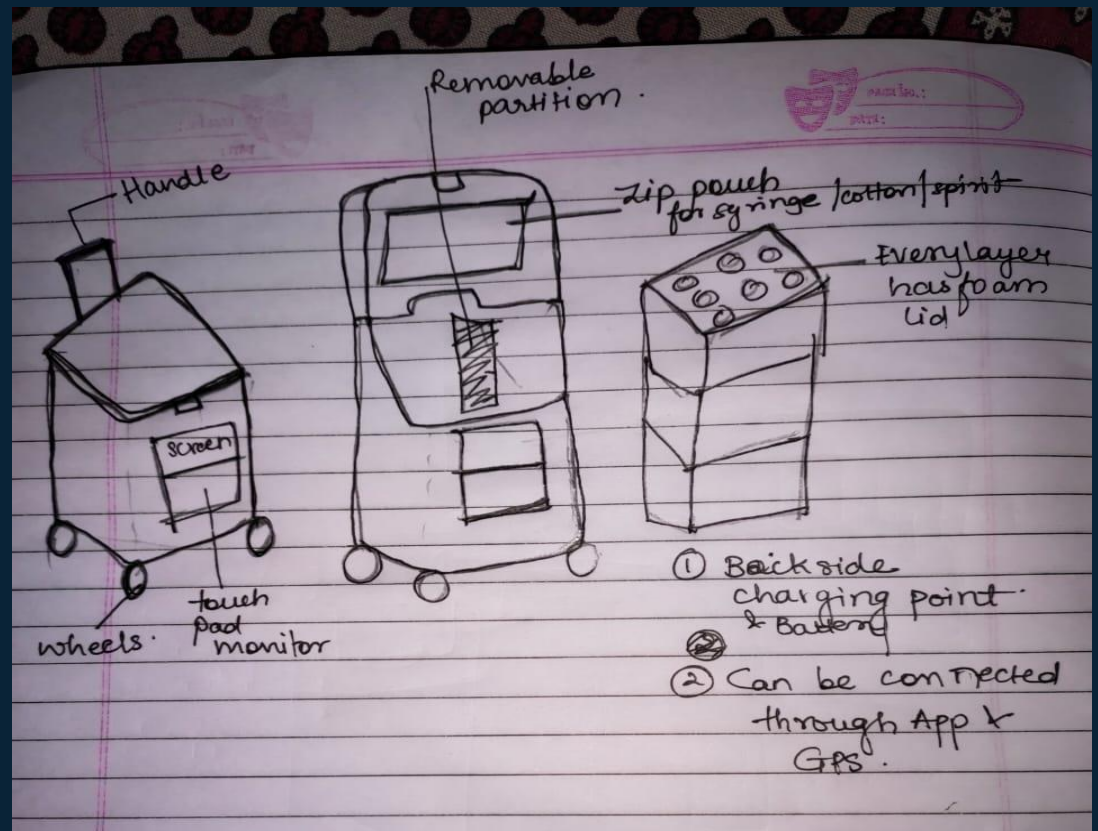 Removable
partition.
PAGE No.:
DATE:
Handle
Zip pouch
for syringe /cotton/spirit
Every layer
has foam
lid
screen
touch
pad
monitor
wheels.
① Backside
charging point.
& Battery
② Can be connected
through App &
GPS.